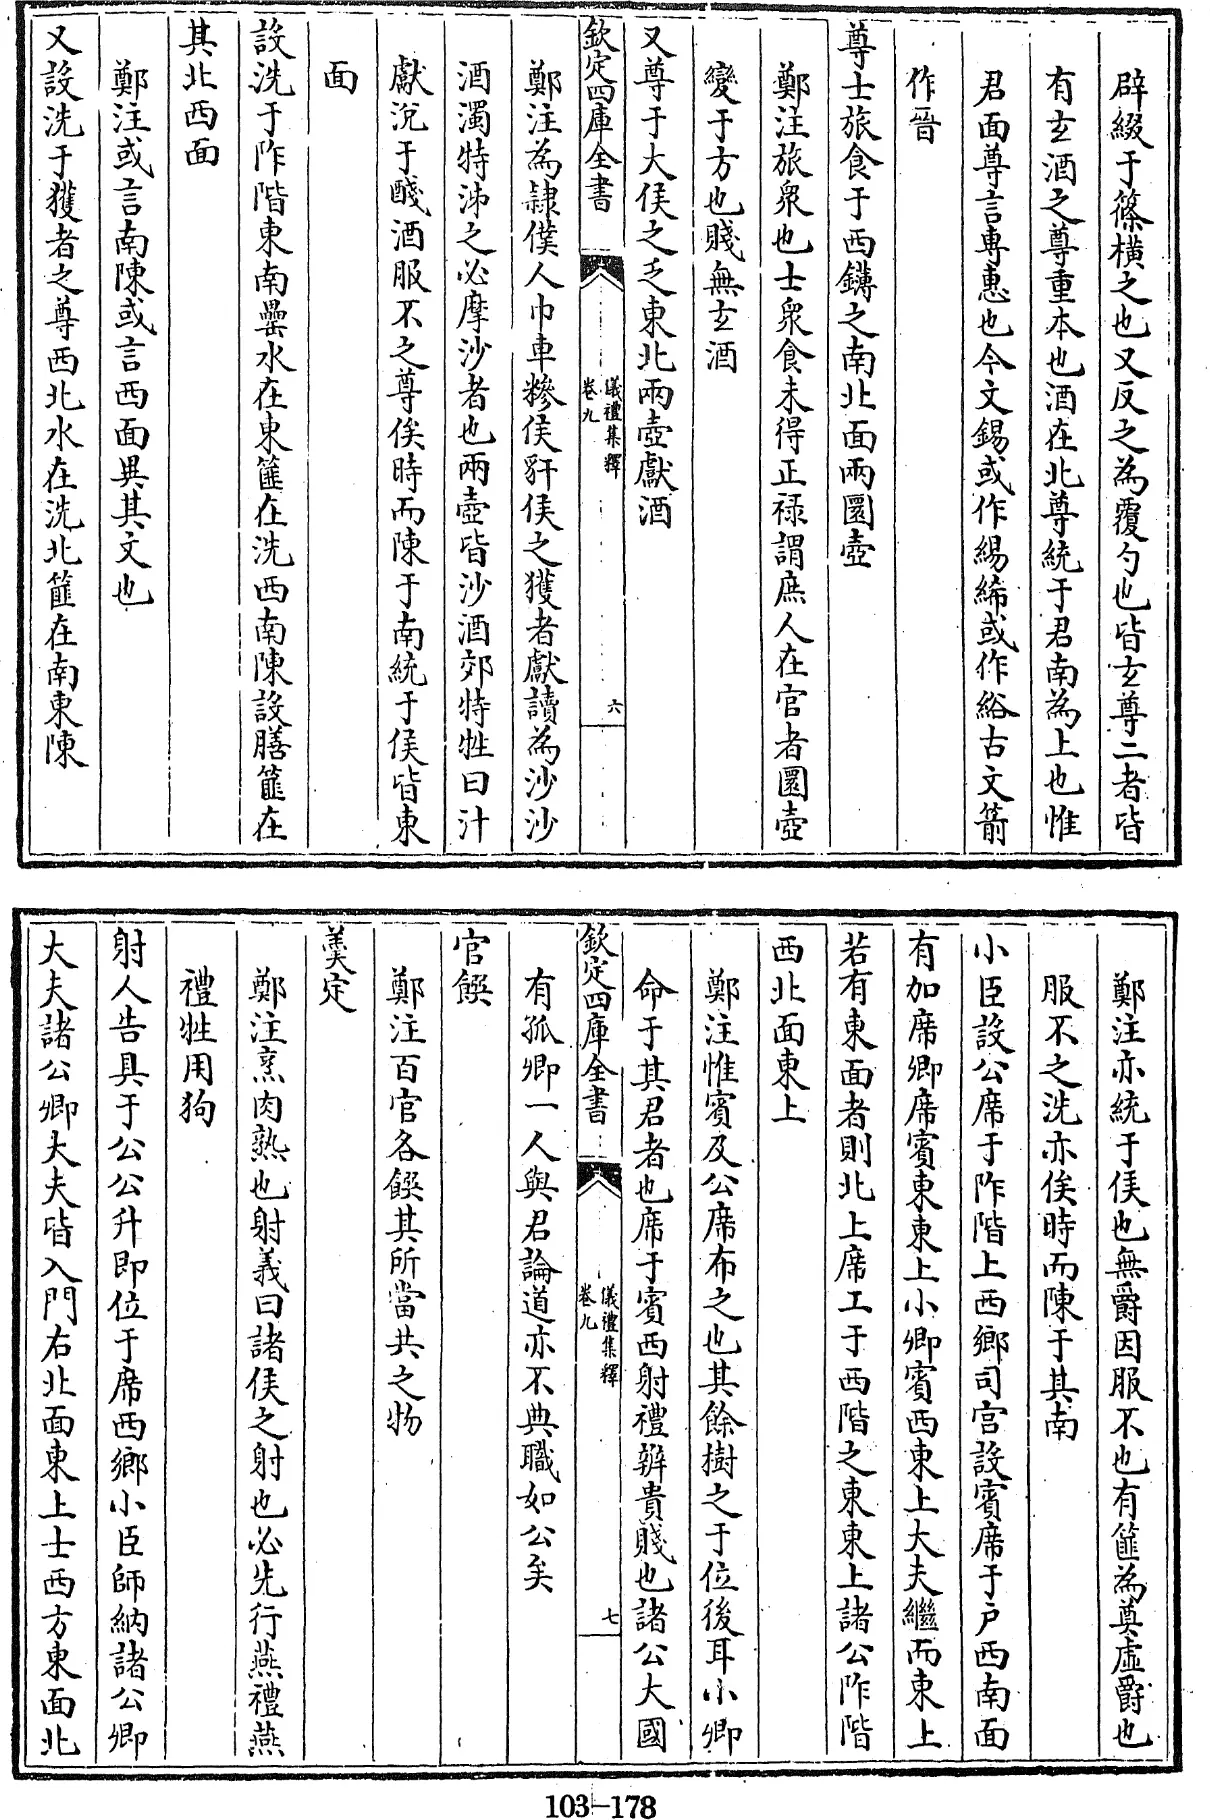 辟綴于篠橫之也又反之為覆勺也皆玄尊二者皆
有玄酒之尊重本也酒在北尊統于君南為上也惟
君面尊言專惠也今文錫或作緆絺或作綌古文箭
作晉
尊士旅食于西鑮之南北面兩圜壺
鄭注旅衆也士衆食未得正祿謂庶人在官者圜壺
變于方也賤無玄酒
又尊于大侯之乏東北兩壺獻酒
欽定四庫全書
儀禮集釋
卷九
六
鄭注為隸僕人巾車糝侯豻侯之獲者獻讀為沙沙
酒濁特泲之必摩沙者也兩壺皆沙酒郊特牲曰汁
獻涗于醆酒服不之尊俟時而陳于南統于侯皆東
面
設洗于阼階東南罍水在東篚在洗西南陳設膳篚在
其北西面
鄭注或言南陳或言西面異其文也
又設洗于獲者之尊西北水在洗北篚在南東陳
鄭注亦統于侯也無爵因服不也有篚為奠虛爵也
服不之洗亦俟時而陳于其南
小臣設公席于阼階上西鄉司宮設賓席于戶西南面
有加席卿席賓東東上小卿賓西東上大夫繼而東上
若有東面者則北上席工于西階之東東上諸公阼階
西北面東上
鄭注惟賓及公席布之也其餘樹之于位後耳小卿
命于其君者也席于賓西射禮辨貴賤也諸公大國
欽定四庫全書
儀禮集釋
卷九
七
有孤卿一人與君論道亦不典職如公矣
官饌
鄭注百官各饌其所當共之物
羹定
鄭注烹肉熟也射義曰諸侯之射也必先行燕禮燕
禮牲用狗
射人告具于公公升即位于席西鄉小臣師納諸公卿
大夫諸公卿大夫皆入門右北面東上士西方東面北
103-178